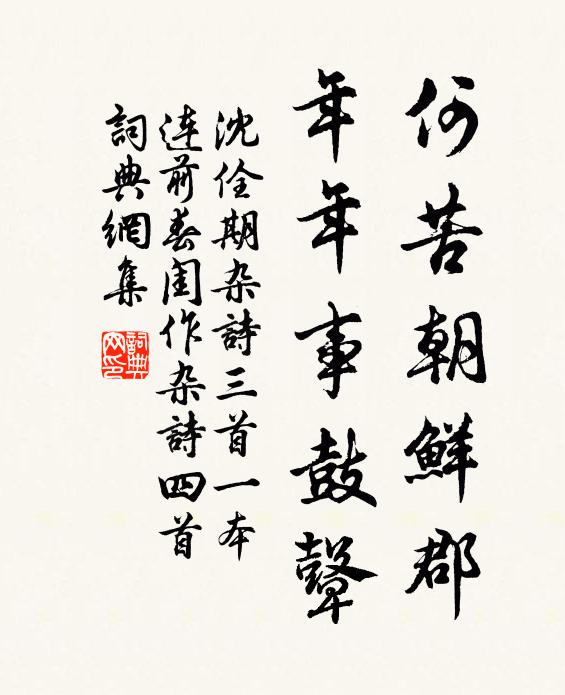 何苦朝鮮郡
年年事鼓鼙
沈佺期杂詩三首一本
連前春閨作杂詩四首
詞典網集
詞典
网印